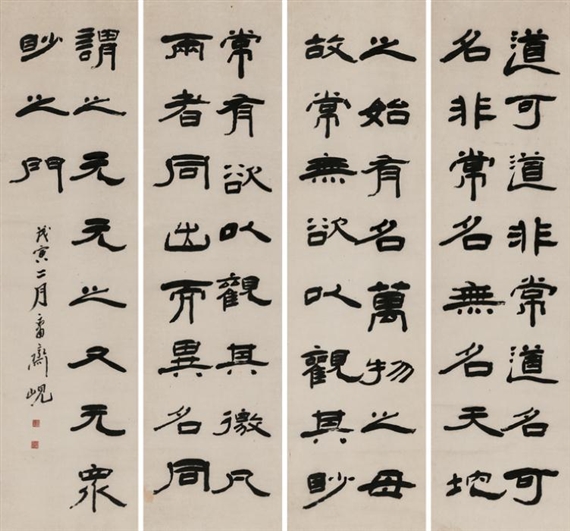 道可道非常道名可
名非常名無名天地
之始有名萬物之母
故常無欲以觀其眇
常有欲以觀其徼凡
兩者同出而異名同
謂之元元之又元眾
眇之門
戊寅二月